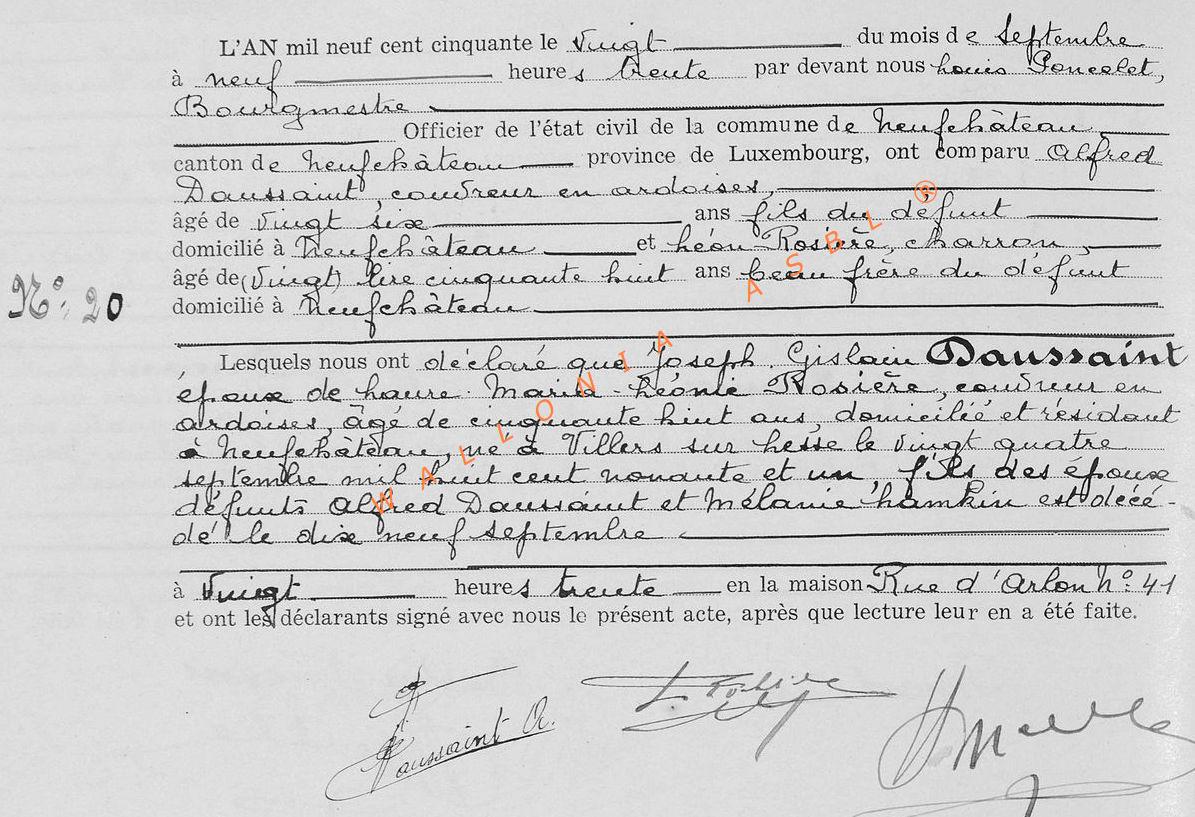 L'AN mil neuf cent cinquante le vingt du mois de septembre
à neuf heures trente par devant nous Louis Poncelet,
Bourgmestre
Officier de l'état civil de la commune de Neufchâteau,
canton de Neufchâteau province de Luxembourg, ont comparu Alfred
Daussaint, couvreur en ardoises,
âgé de vingt six ans fils du défunt
domicilié à Neufchâteau et Léon Rosière, charron,
âgé de (vingt) lire cinquante huit ans beau frère du défunt
domicilié à Neufchâteau
N° 20
Lesquels nous ont déclaré que Joseph Gislain Daussaint
époux de Laure Maria Léonie Rosière, couvreur en
ardoises, âgé de cinquante huit ans, domicilié et résidant
à Neufchâteau, né à Villers sur Lesse le vingt quatre
septembre mil huit cent nonante et un, fils des époux
défunts Alfred Daussaint et Mélanie Hamkin est décé-
dé le dix neuf septembre
à vingt heures trente en la maison Rue d'Arlon N° 41
et ont les déclarants signé avec nous le présent acte, après que lecture leur en a été faite.
Daussaint A.
WALLONIA ASBL ®